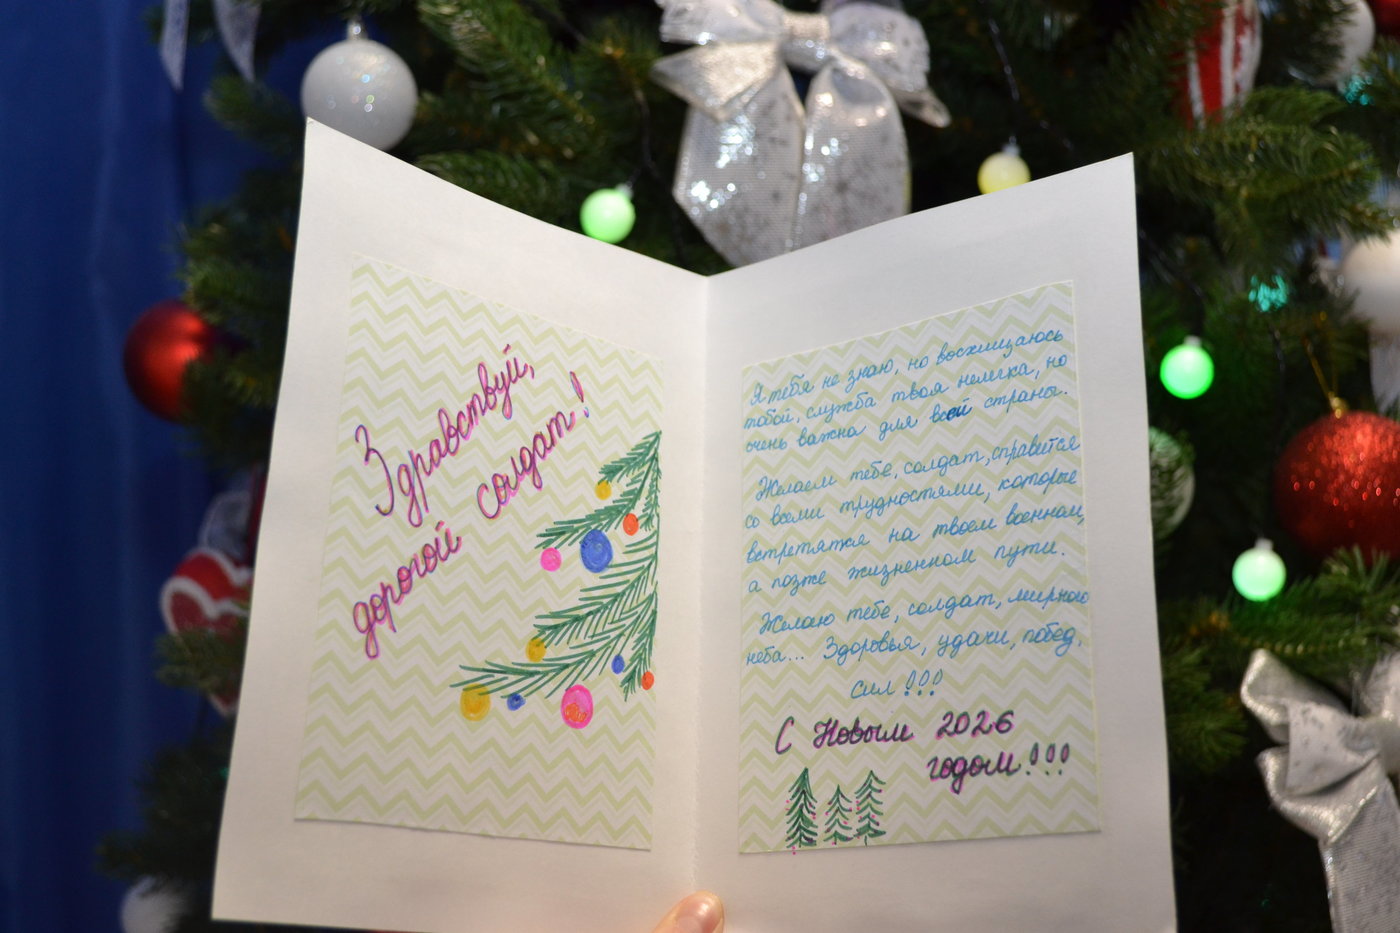 Здравствуй,
дорогой солдат!
Я тебя не знаю, но восхищаюсь
тобой, служба твоя нелегка, но
очень важна для всей страны.
Желаем тебе, солдат, справится
со всеми трудностями, которые
встретятся на твоем военном,
а позже жизненном пути.
Желаю тебе, солдат, мирного
неба... Здоровья, удачи, побед,
сил!!!
С Новым 2026
годом!!!